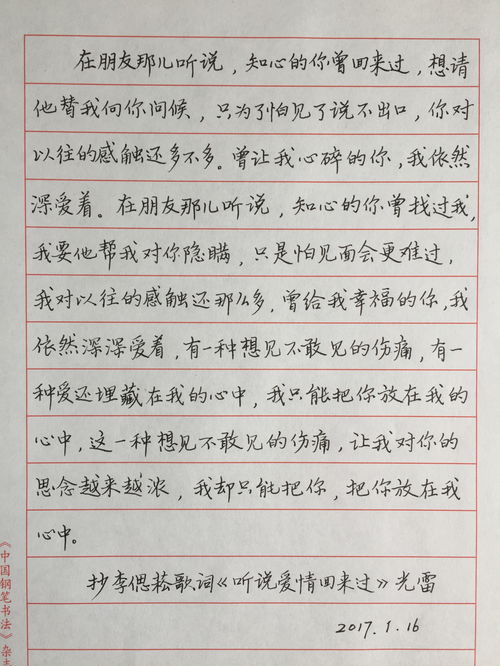 在朋友那儿听说，知心的你曾回来过，想请
他替我向你问候，只为了怕见了说不出口，你对
以往的感触还多不多。曾让我心碎的你，我依然
深爱着。在朋友那儿听说，知心的你曾找过我，
我要他帮我对你隐瞒，只是怕见面会更难过，
我对以往的感触还那么多，曾给我幸福的你，我
依然深深爱着，有一种想见不敢见的伤痛，有一
种爱还埋藏在我的心中，我只能把你放在我的
心中，这一种想见不敢见的伤痛，让我对你的
思念越来越浓，我却只能把你，把你放在我
心中。
抄李偲菘歌词《听说爱情回来过》光雷
2017.1.16
《中国钢笔书法》杂志